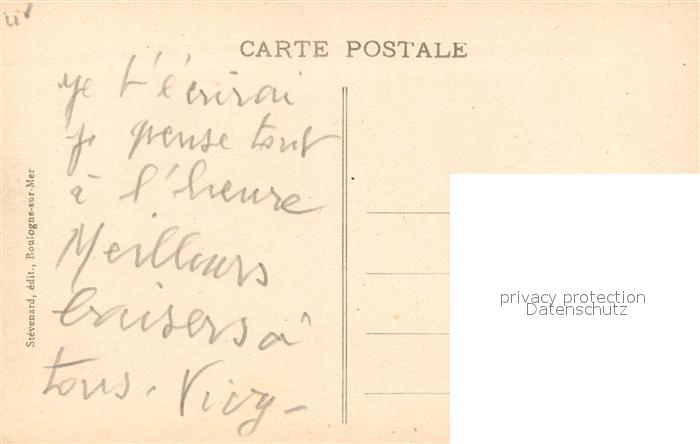 CARTE POSTALE
je t'écrirai
je pense tout
à l'heure
Meilleurs
baisers à
tous.
Stévenard, édit., Boulogne-sur-Mer
privacy protection
Datenschutz